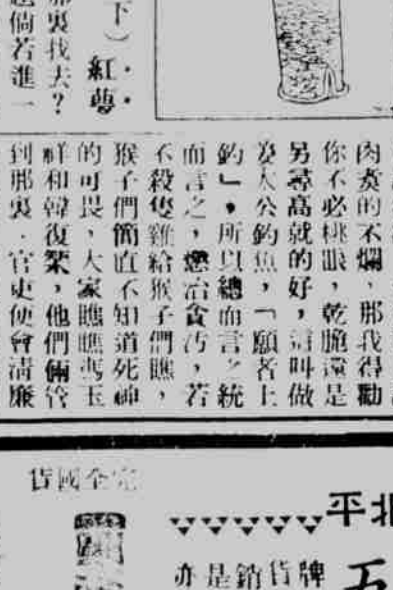 下）．．紅夢
那裏找去？
倘若進一
肉煑的不爛，那我得勸
你不必桃眼，乾脆還是
另尋高就的好，這叫做
姜太公釣魚，「願者上
釣」，所以總而言之統
而言之，懲治貪汚，若
不殺隻雞給猴子們瞧，
猴子們簡直不知道死神
的可畏，大家瞧瞧馮玉
祥和韓復榘，他們倆管
到那裏．官吏便會清廉
北平
五
亦是銷貨牌
完全國貨